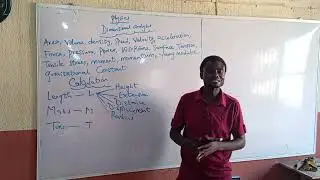 Physics
Dimensional analysis
Area, Volume, density, Speed, Velocity, acceleration,
Force, pressure, Power, Surface Tension,
Tensile stress, moment, momentum, young modulus,
gravitational Constant
Calculation
Length — L
Height
Extension
Distance
Displacement
Radius
Mass — M
Time — T